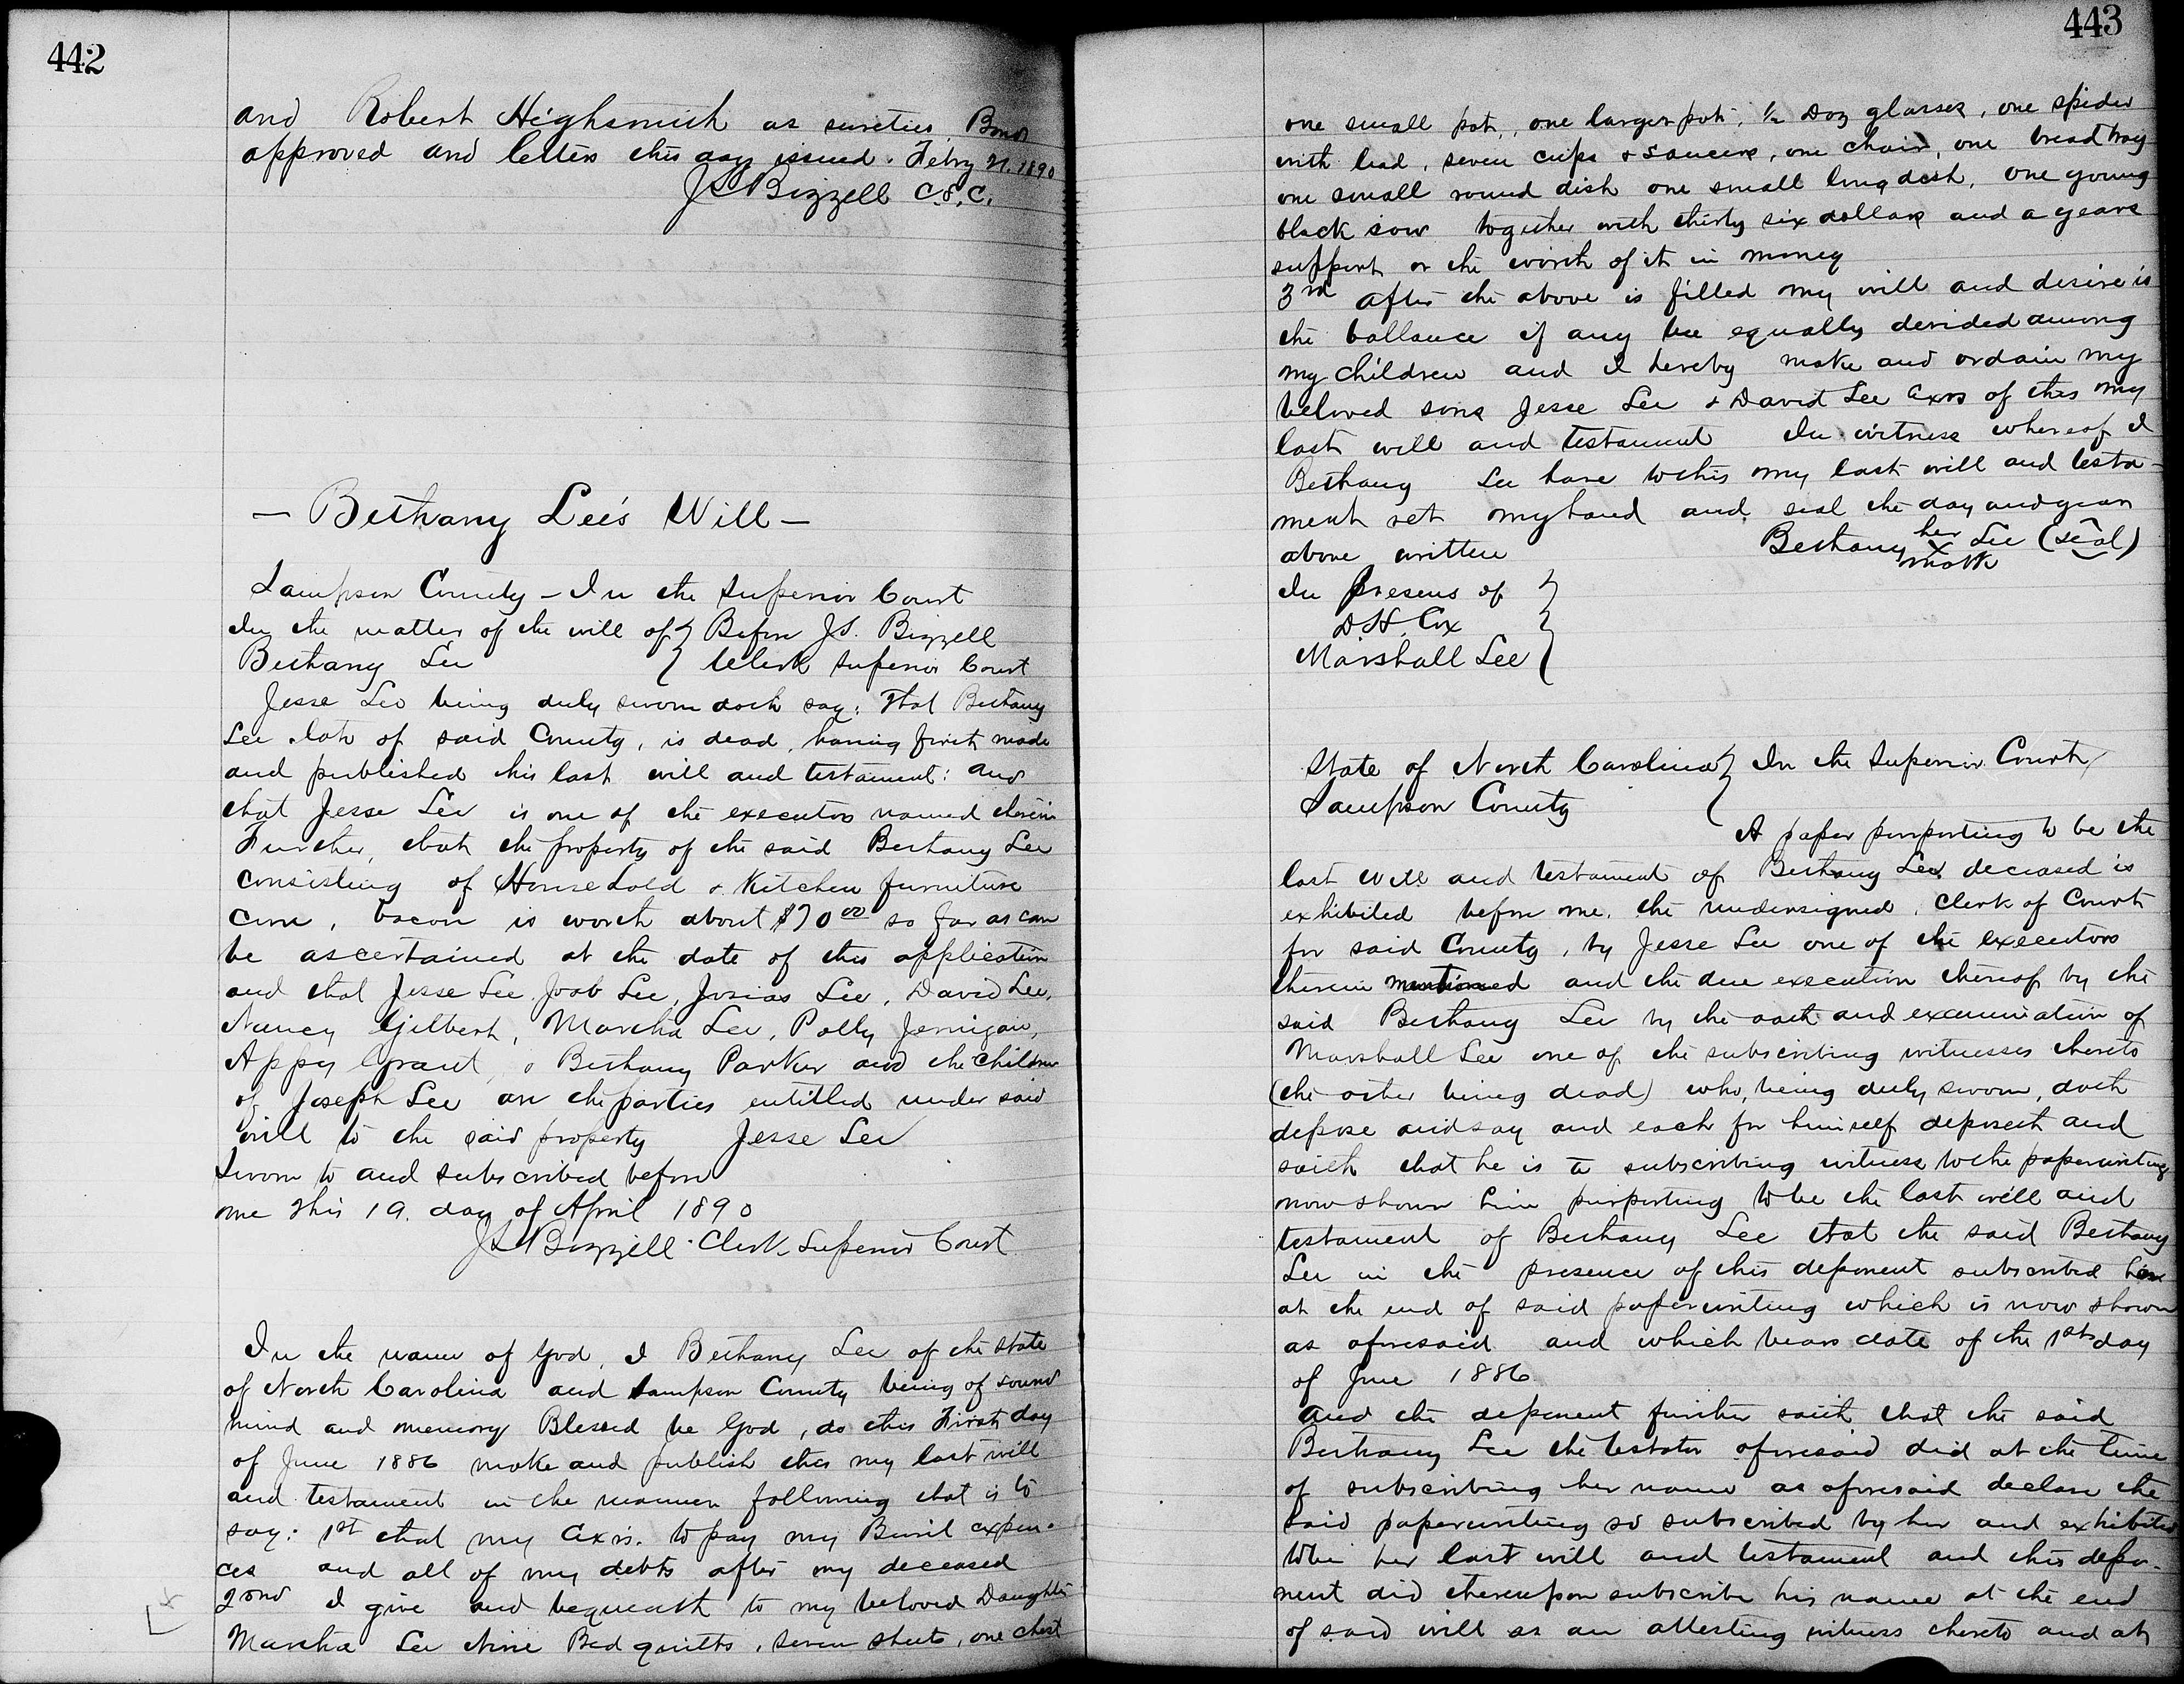 442
and Robert Highsmith as sureties. Bond
approved and letters this day issued. Febry 21. 1890
JS Bizzell C.S.C.
— Bethany Lee's Will —
Sampson County — In the Superior Court
In the matter of the will of } Before J.S. Bizzell
Bethany Lee } Clerk Superior Court
Jesse Lee being duly sworn doth say: That Bethany
Lee late of said County, is dead, having first made
and published his last will and testament: and
that Jesse Lee is one of the executors named therein
Further, that the property of the said Bethany Lee
consisting of House hold & Kitchen furniture
Corn, bacon is worth about $70 00 so far as can
be ascertained at the date of this application
and that Jesse Lee, Joab Lee, Josias Lee, David Lee,
Nancy Gilbert, Martha Lee, Polly Jernigan,
Appy Grant, & Bethany Parker and the Children
of Joseph Lee are the parties entitled under said
will to the said property Jesse Lee
Sworn to and subscribed before
me this 19. day of April 1890
JS Bizzell Clerk Superior Court
In the name of God, I Bethany Lee of the State
of North Carolina and Sampson County being of sound
mind and memory Blessed be God, do this First day
of June 1886 make and publish this my last will
and testament in the manner following that is to
say: 1st that my Exrs. to pay my Buril expen-
ces and all of my debts after my deceased
2ond I give and bequeath to my beloved Daughter
Martha Lee Nine Bed quilts, seven sheets, one chest
443
one small pot, one larger pot, ½ Doz glasses, one spider
with lead, seven cups & saucers, one chair, one bread tray
one small round dish one small long dish, one young
black sow together with thirty six dollars and a years
support or the worth of it in money
3rd After the above is filled my will and desire is
the ballance if any bee equally devided among
my children and I hereby make and ordain my
beloved sons Jesse Lee & David Lee Exrs of this my
last will and testament In witness whereof I
Bethany Lee have to this my last will and testa-
ment set my hand and seal the day and year
above written Bethany her X mark Lee (seal)
In presens of }
D.H. Cox }
Marshall Lee }
State of North Carolina } In the Superior Court
Sampson County }
A paper purporting to be the
last will and testament of Bethany Lee deceased is
exhibited before me, the undersigned, Clerk of Court
for said County, by Jesse Lee one of the executors
therein mentioned and the due execution thereof by the
said Bethany Lee by the oath and examination of
Marshall Lee one of the subscribing witnesses thereto
(the other being dead) who, being duly sworn, doth
depose and say and each for himself deposeth and
saith that he is a subscribing witness to the paperwriting
now shown him purporting to be the last will and
testament of Bethany Lee that the said Bethany
Lee in the presence of this deponent subscribed
at the end of said paperwriting which is now shown
as aforesaid and which bears date of the 1st day
of June 1886
And the deponent further saith that the said
Bethany Lee the testator aforesaid did at the time
of subscribing her name as aforesaid declare the
said paperwriting so subscribed by her and exhibited
to be her last will and testament and this depo-
nent did thereupon subscribe his name at the end
of said will as an attesting witness thereto and at